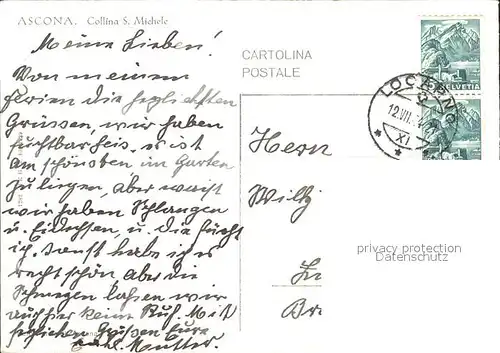 ASCONA. Collina S. Michele
CARTOLINA
POSTALE
HELVETIA
HELVETIA
LOCARNO
12.VII.
XI
Meine Lieben!
Von meinem
Ferien die herzlichsten
Grüssen, wir haben
furchtbar heis, es ist
am schönsten im Garten
zu liegen, aber
wir haben Schlangen
u. Eidechsen, u. die fürcht
ich. Sonst habe ich es
recht schön aber die
lassen wir
auch hier keine Ruh. Mit
herzlichen Grüssen Eure
Mutter.
Herrn
Willy
privacy protection
Datenschutz